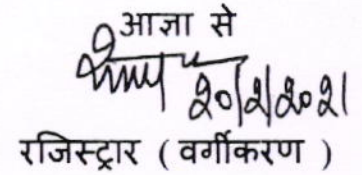 आज्ञा से
20/2/2021
रजिस्ट्रार ( वर्गीकरण )